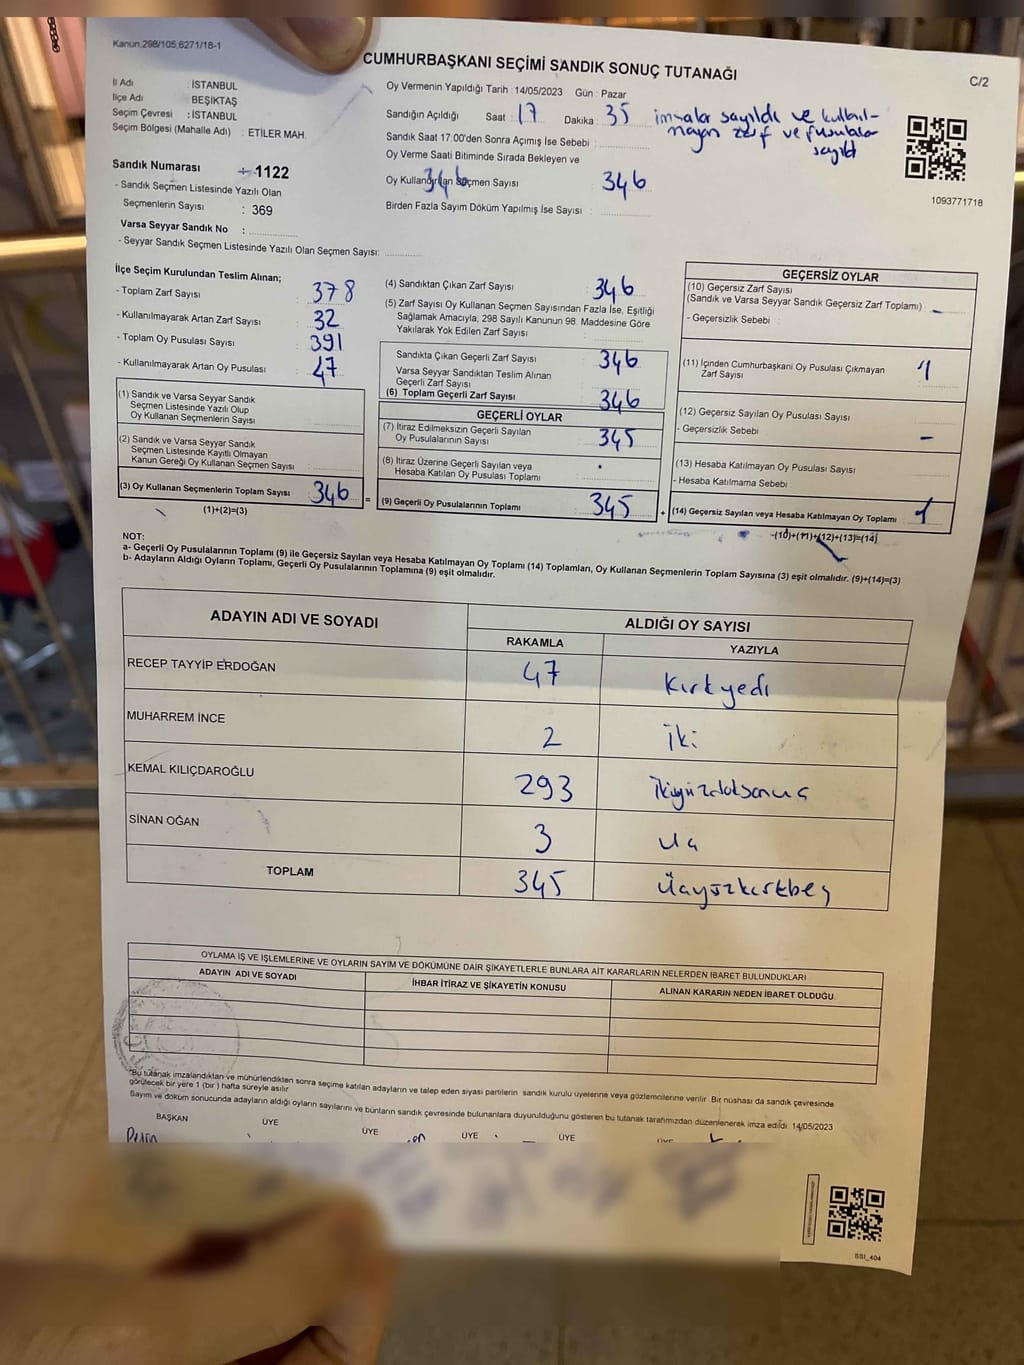 Kanun,298/105,6271/18-1
CUMHURBAŞKANI SEÇİMİ SANDIK SONUÇ TUTANAĞI
C/2
İl Adı : İSTANBUL
İlçe Adı BEŞİKTAŞ
Seçim Çevresi : İSTANBUL
Seçim Bölgesi (Mahalle Adı) : ETİLER MAH.
Sandık Numarası 1122
- Sandık Seçmen Listesinde Yazılı Olan
Seçmenlerin Sayısı : 369
Varsa Seyyar Sandık No :
- Seyyar Sandık Seçmen Listesinde Yazılı Olan Seçmen Sayısı:
Oy Vermenin Yapıldığı Tarih : 14/05/2023 Gün : Pazar
Sandığın Açıldığı Saat : 17 Dakika : 35
imzalar sayıldı ve kullanıl-
mayan zarf ve pusulalar
sayıldı
Sandık Saat 17:00'den Sonra Açımış İse Sebebi :
Oy Verme Saati Bitiminde Sırada Bekleyen ve
Oy Kullandırılan Seçmen Sayısı 346 346
Birden Fazla Sayım Döküm Yapılmış İse Sayısı :
1093771718
İlçe Seçim Kurulundan Teslim Alınan;
- Toplam Zarf Sayısı 378
- Kullanılmayarak Artan Zarf Sayısı 32
- Toplam Oy Pusulası Sayısı 391
- Kullanılmayarak Artan Oy Pusulası 47
(1) Sandık ve Varsa Seyyar Sandık
Seçmen Listesinde Yazılı Olup
Oy Kullanan Seçmenlerin Sayısı
(2) Sandık ve Varsa Seyyar Sandık
Seçmen Listesinde Kayıtlı Olmayan
Kanun Gereği Oy Kullanan Seçmen Sayısı
(3) Oy Kullanan Seçmenlerin Toplam Sayısı 346 =
(1)+(2)=(3)
(4) Sandıktan Çıkan Zarf Sayısı 346
(5) Zarf Sayısı Oy Kullanan Seçmen Sayısından Fazla İse, Eşitliği
Sağlamak Amacıyla, 298 Sayılı Kanunun 98. Maddesine Göre
Yakılarak Yok Edilen Zarf Sayısı
Sandıkta Çıkan Geçerli Zarf Sayısı 346
Varsa Seyyar Sandıktan Teslim Alınan
Geçerli Zarf Sayısı
(6) Toplam Geçerli Zarf Sayısı 346
GEÇERLİ OYLAR
(7) İtiraz Edilmeksizin Geçerli Sayılan
Oy Pusulalarının Sayısı 345
(8) İtiraz Üzerine Geçerli Sayılan veya
Hesaba Katılan Oy Pusulası Toplamı
(9) Geçerli Oy Pusulalarının Toplamı 345 +
GEÇERSİZ OYLAR
(10) Geçersiz Zarf Sayısı
(Sandık ve Varsa Seyyar Sandık Geçersiz Zarf Toplamı) : -
- Geçersizlik Sebebi :
(11) İçinden Cumhurbaşkanı Oy Pusulası Çıkmayan
Zarf Sayısı 1
(12) Geçersiz Sayılan Oy Pusulası Sayısı
- Geçersizlik Sebebi -
(13) Hesaba Katılmayan Oy Pusulası Sayısı
- Hesaba Katılmama Sebebi
(14) Geçersiz Sayılan veya Hesaba Katılmayan Oy Toplamı 1
-(10)+(11)+(12)+(13)=(14)
NOT:
a- Geçerli Oy Pusulalarının Toplamı (9) ile Geçersiz Sayılan veya Hesaba Katılmayan Oy Toplamı (14) Toplamları, Oy Kullanan Seçmenlerin Toplam Sayısına (3) eşit olmalıdır. (9)+(14)=(3)
b- Adayların Aldığı Oyların Toplamı, Geçerli Oy Pusulalarının Toplamına (9) eşit olmalıdır.
ADAYIN ADI VE SOYADI ALDIĞI OY SAYISI
RAKAMLA YAZIYLA
RECEP TAYYİP ERDOĞAN 47 Kırkyedi
MUHARREM İNCE 2 iki
KEMAL KILIÇDAROĞLU 293 ikiyüzdoksanüç
SİNAN OĞAN 3 üç
TOPLAM 345 Üçyüzkırkbeş
OYLAMA İŞ VE İŞLEMLERİNE VE OYLARIN SAYIM VE DÖKÜMÜNE DAİR ŞİKAYETLERLE BUNLARA AİT KARARLARIN NELERDEN İBARET BULUNDUKLARI
ADAYIN ADI VE SOYADI İHBAR İTİRAZ VE ŞİKAYETİN KONUSU ALINAN KARARIN NEDEN İBARET OLDUĞU
"Bu tutanak imzalandıktan ve mühürlendikten sonra seçime katılan adayların ve talep eden siyasi partilerin sandık kurulu üyelerine veya gözlemcilerine verilir. Bir nüshası da sandık çevresinde
görülecek bir yere 1 (bir) hafta süreyle asılır.
Sayım ve döküm sonucunda adayların aldığı oyların sayılarını ve bunların sandık çevresinde bulunanlara duyurulduğunu gösteren bu tutanak tarafımızdan düzenlenerek imza edildi. 14/05/2023
BAŞKAN ÜYE ÜYE ÜYE ÜYE
SSI_404